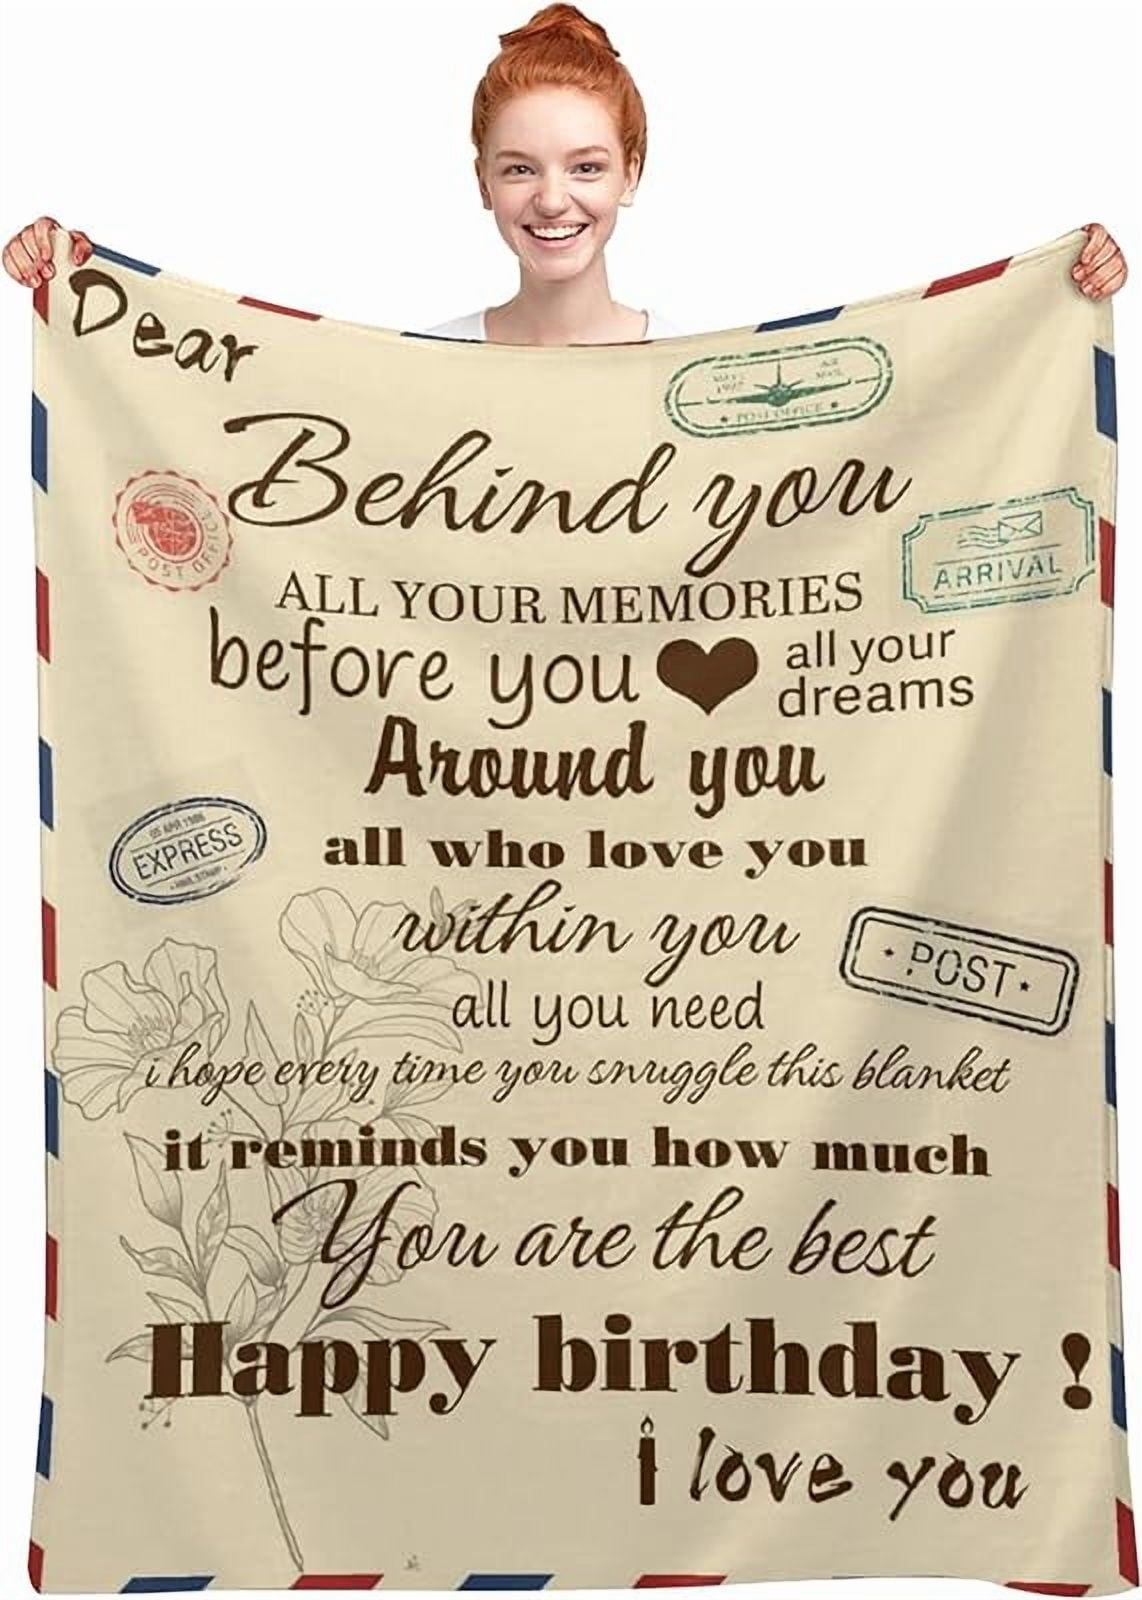 Dear
AIR
MAIL
1997
POST OFFICE
Behind you
POST OFFICE
ARRIVAL
ALL YOUR MEMORIES
before you
all your
dreams
Around you
05 APR 1986
EXPRESS
all who love you
within you
POST
all you need
i hope every time you snuggle this blanket
it reminds you how much
You are the best
Happy birthday !
i love you